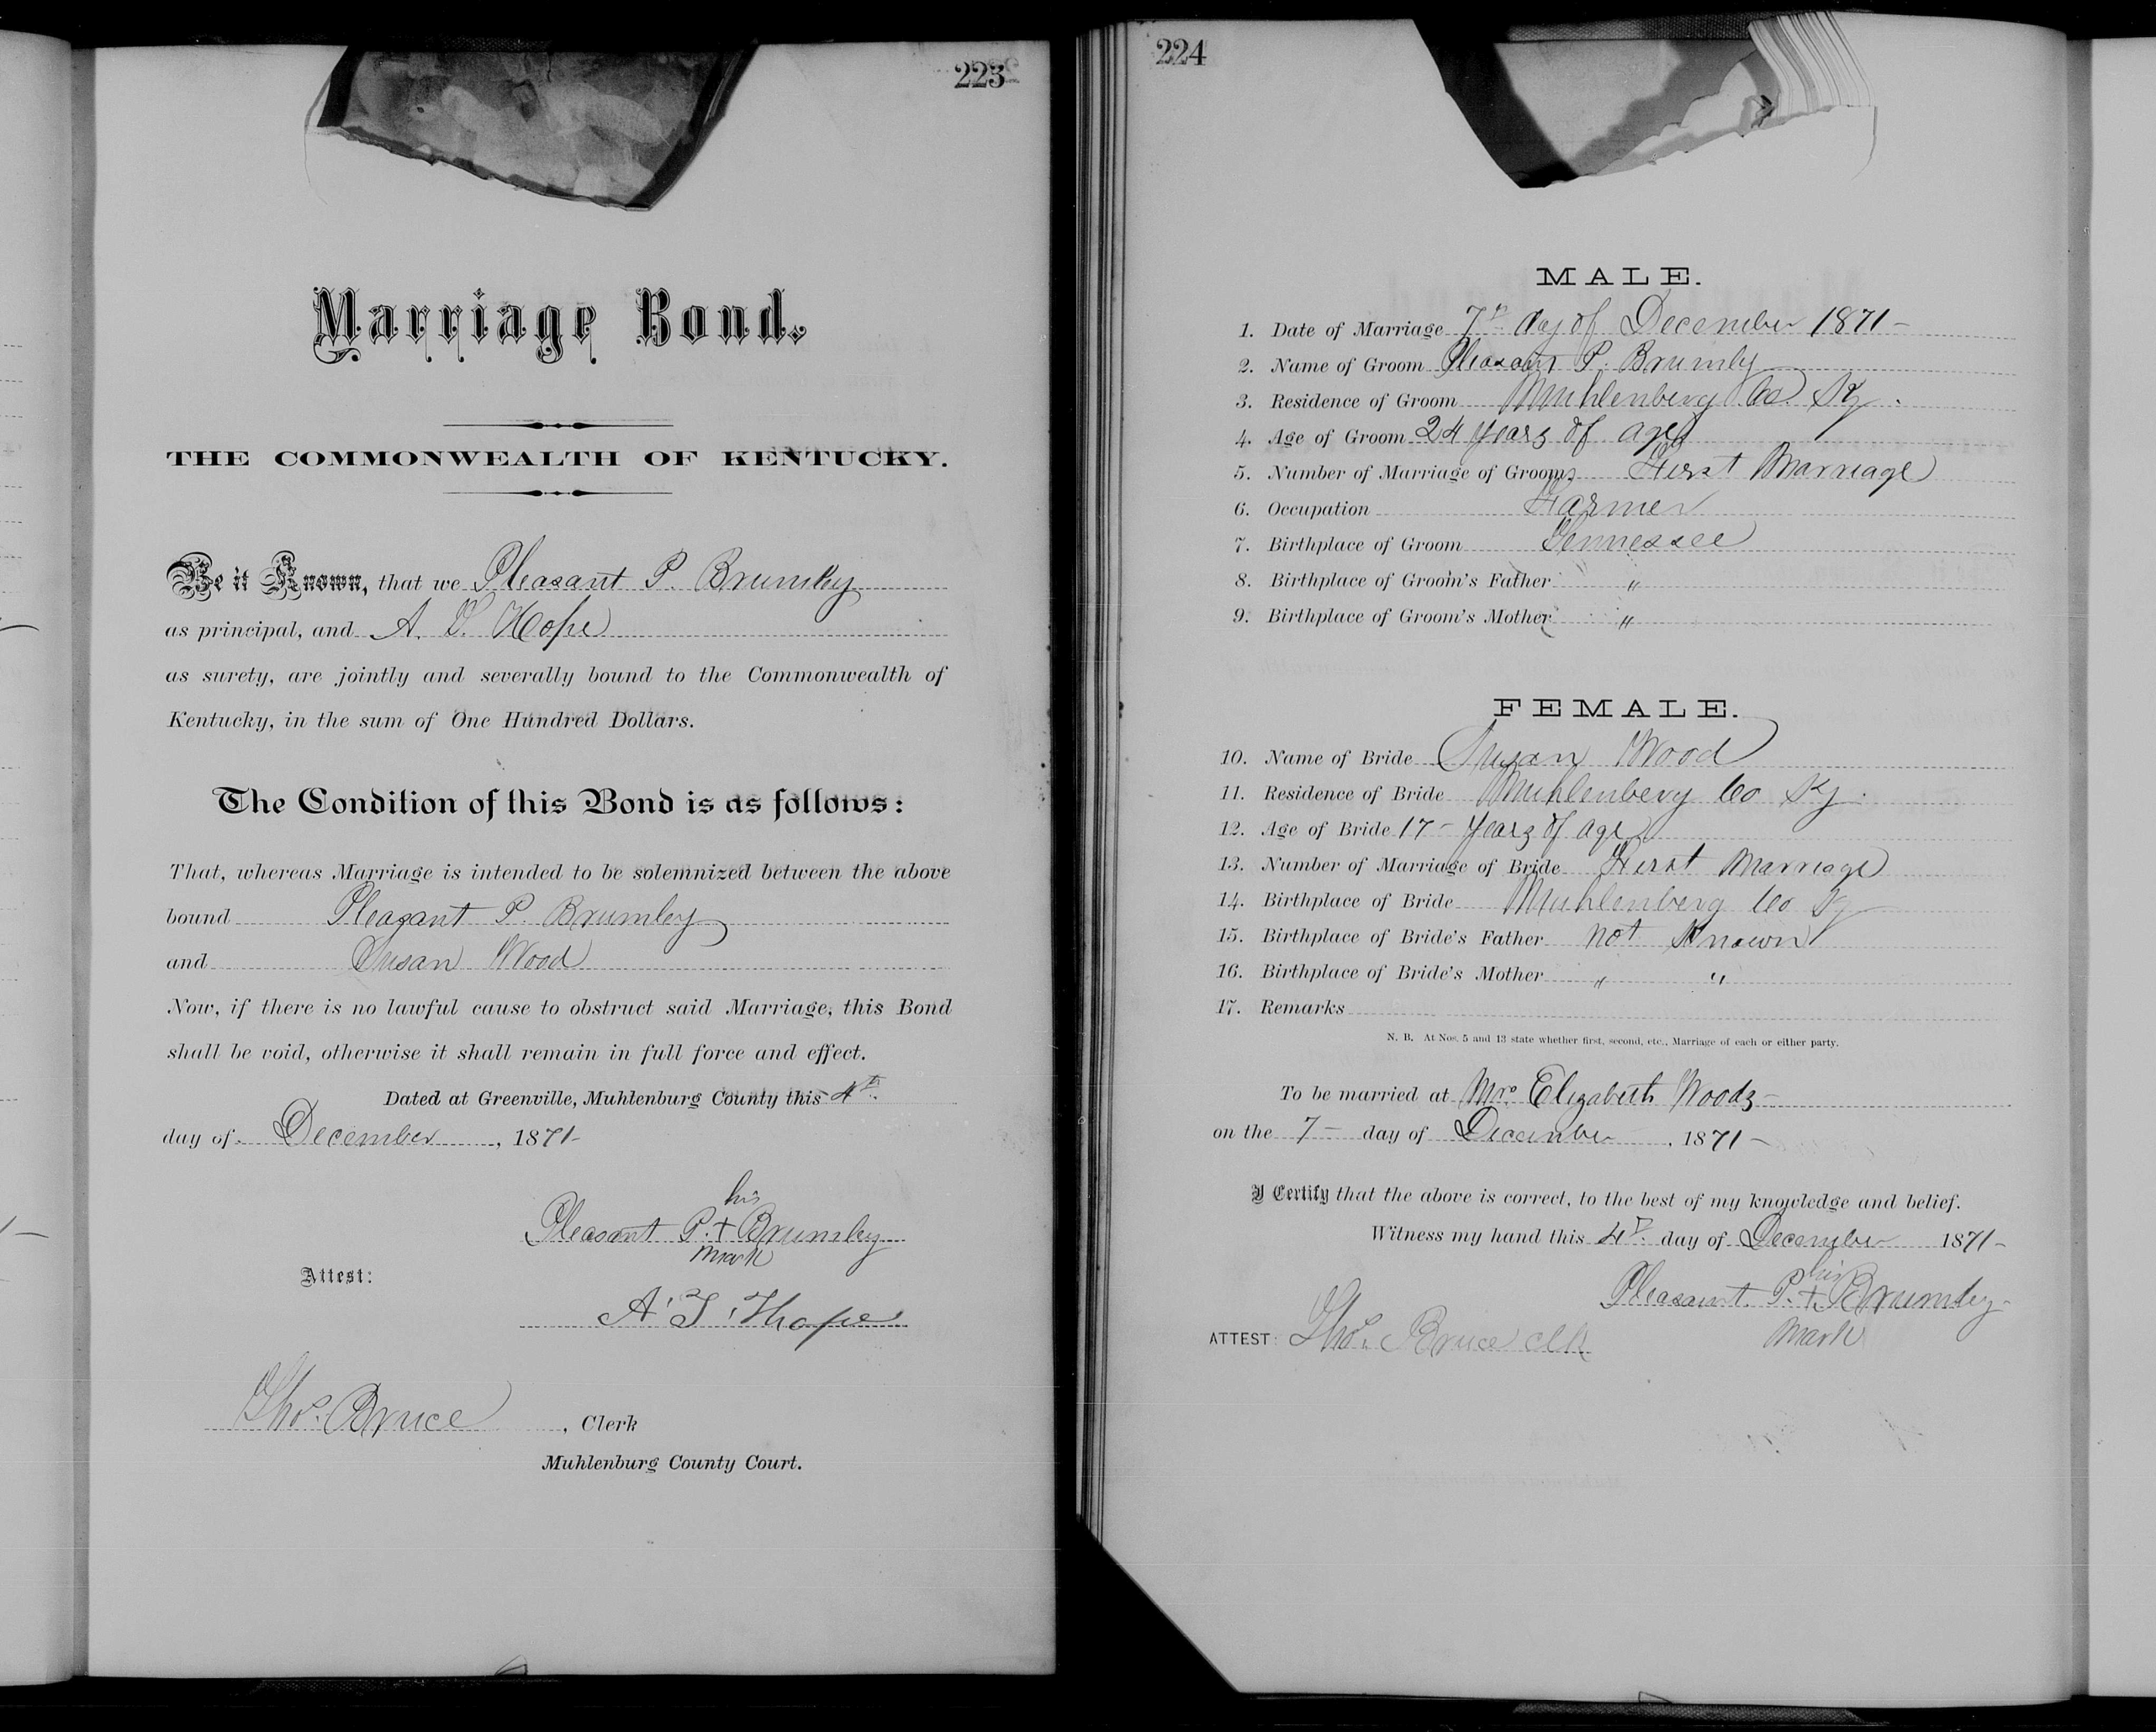 223
Marriage Bond.
THE COMMONWEALTH OF KENTUCKY.
Be it Known, that we Pleasant P. Brumley
as principal, and A. J. Hope
as surety, are jointly and severally bound to the Commonwealth of
Kentucky, in the sum of One Hundred Dollars.
The Condition of this Bond is as follows:
That, whereas Marriage is intended to be solemnized between the above
bound Pleasant P. Brumley
and Susan Wood
Now, if there is no lawful cause to obstruct said Marriage, this Bond
shall be void, otherwise it shall remain in full force and effect.
Dated at Greenville, Muhlenburg County this 4th
day of December, 1871-
his
Pleasant P. + Brumley
mark
Attest:
A J Hope
Thos. Bruce, Clerk
Muhlenburg County Court.
224
MALE.
1. Date of Marriage 7th day of December 1871-
2. Name of Groom Pleasant P. Brumly
3. Residence of Groom Muhlenberg Co. Ky.
4. Age of Groom 24 years of age
5. Number of Marriage of Groom First Marriage
6. Occupation Farmer
7. Birthplace of Groom Tennessee
8. Birthplace of Groom's Father " "
9. Birthplace of Groom's Mother "
FEMALE.
10. Name of Bride Susan Wood
11. Residence of Bride Muhlenberg Co Ky.
12. Age of Bride 17- years of age
13. Number of Marriage of Bride First Marriage
14. Birthplace of Bride Muhlenberg Co Ky
15. Birthplace of Bride's Father not Known
16. Birthplace of Bride's Mother " "
17. Remarks
N. B. At Nos. 5 and 13 state whether first, second, etc., Marriage of each or either party.
To be married at Mrs Elizabeth Woods-
on the 7- day of December, 1871-
I Certify that the above is correct, to the best of my knowledge and belief.
Witness my hand this 4th day of December 1871-
his
Pleasant P. + Brumley
mark
ATTEST: Thos. Bruce clk